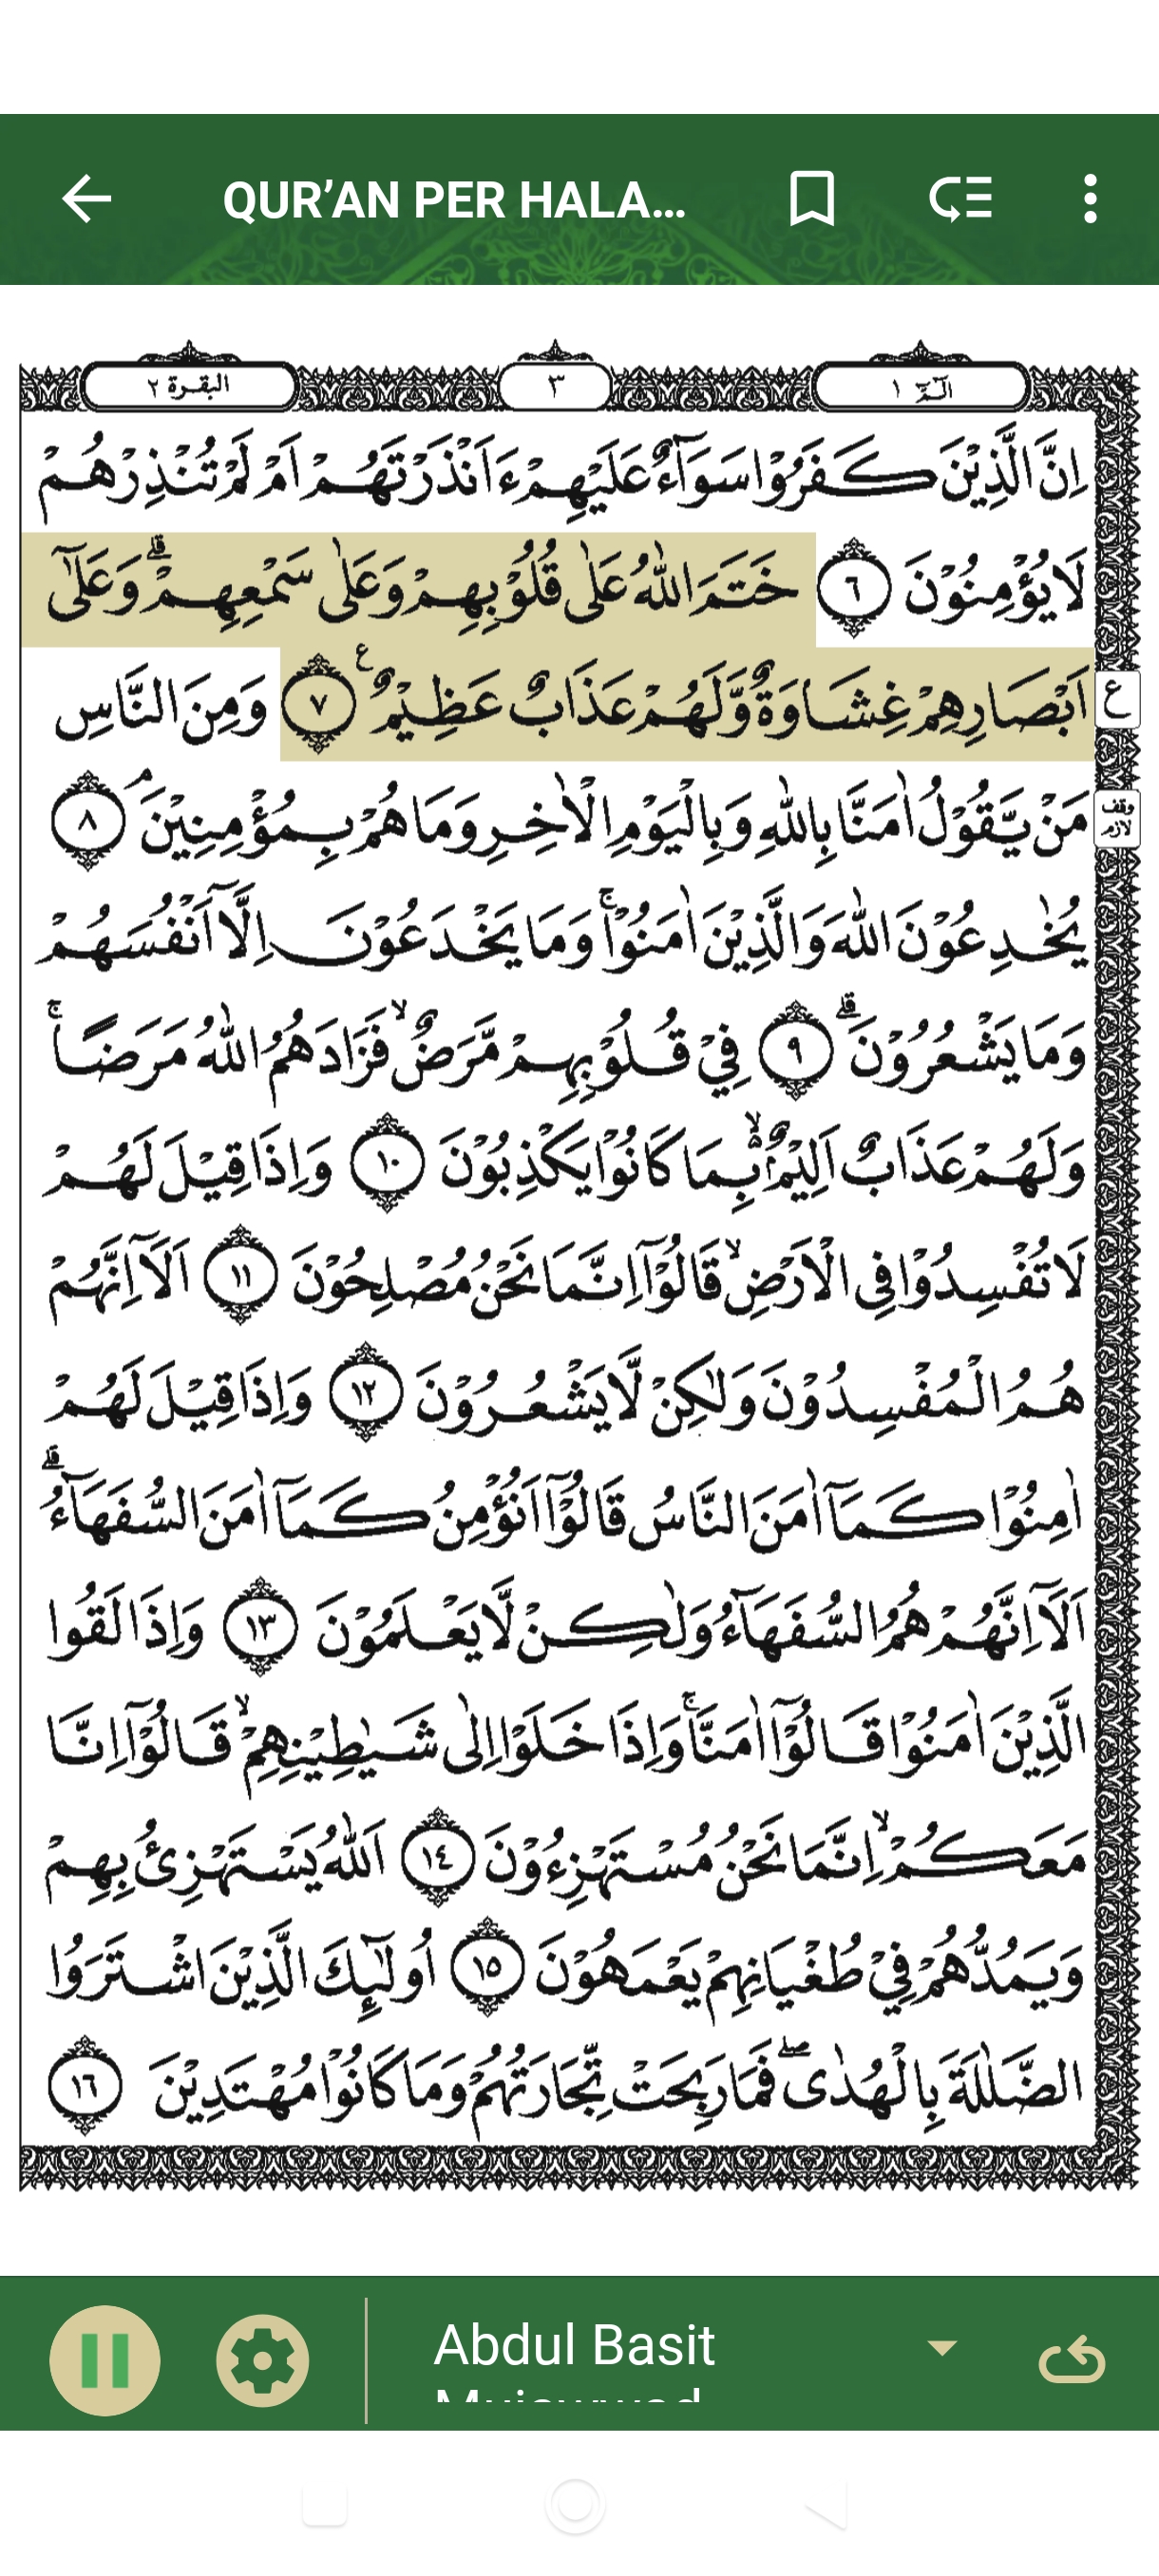 QUR’AN PER HALA...
الۤمّۤ ١
٣
البقرة ٢
اِنَّ الَّذِيْنَ كَفَرُوْا سَوَاۤءٌ عَلَيْهِمْ ءَاَنْذَرْتَهُمْ اَمْ لَمْ تُنْذِرْهُمْ
لَا يُؤْمِنُوْنَ ٦ خَتَمَ اللّٰهُ عَلٰى قُلُوْبِهِمْ وَعَلٰى سَمْعِهِمْ ۗ وَعَلٰٓى
اَبْصَارِهِمْ غِشَاوَةٌ وَّلَهُمْ عَذَابٌ عَظِيْمٌ ع ٧ وَمِنَ النَّاسِ
ع
مَنْ يَّقُوْلُ اٰمَنَّا بِاللّٰهِ وَبِالْيَوْمِ الْاٰخِرِ وَمَا هُمْ بِمُؤْمِنِيْنَ ۘ ٨
وقف لازم
يُخٰدِعُوْنَ اللّٰهَ وَالَّذِيْنَ اٰمَنُوْا ۚ وَمَا يَخْدَعُوْنَ اِلَّآ اَنْفُسَهُمْ
وَمَا يَشْعُرُوْنَ ۗ ٩ فِيْ قُلُوْبِهِمْ مَّرَضٌ ۙ فَزَادَهُمُ اللّٰهُ مَرَضًا ۚ
وَلَهُمْ عَذَابٌ اَلِيْمٌ ۢ ۙ بِمَا كَانُوْا يَكْذِبُوْنَ ١٠ وَاِذَا قِيْلَ لَهُمْ
لَا تُفْسِدُوْا فِى الْاَرْضِ ۙ قَالُوْٓا اِنَّمَا نَحْنُ مُصْلِحُوْنَ ١١ اَلَآ اِنَّهُمْ
هُمُ الْمُفْسِدُوْنَ وَلٰكِنْ لَّا يَشْعُرُوْنَ ١٢ وَاِذَا قِيْلَ لَهُمْ
اٰمِنُوْا كَمَآ اٰمَنَ النَّاسُ قَالُوْٓا اَنُؤْمِنُ كَمَآ اٰمَنَ السُّفَهَاۤءُ ۗ
اَلَآ اِنَّهُمْ هُمُ السُّفَهَاۤءُ وَلٰكِنْ لَّا يَعْلَمُوْنَ ١٣ وَاِذَا لَقُوا
الَّذِيْنَ اٰمَنُوْا قَالُوْٓا اٰمَنَّا ۚ وَاِذَا خَلَوْا اِلٰى شَيٰطِيْنِهِمْ ۙ قَالُوْٓا اِنَّا
مَعَكُمْ ۙ اِنَّمَا نَحْنُ مُسْتَهْزِءُوْنَ ١٤ اَللّٰهُ يَسْتَهْزِئُ بِهِمْ
وَيَمُدُّهُمْ فِيْ طُغْيَانِهِمْ يَعْمَهُوْنَ ١٥ اُولٰۤىِٕكَ الَّذِيْنَ اشْتَرَوُا
الضَّلٰلَةَ بِالْهُدٰى ۖ فَمَا رَبِحَتْ تِّجَارَتُهُمْ وَمَا كَانُوْا مُهْتَدِيْنَ ١٦
Abdul Basit
Mujawwad